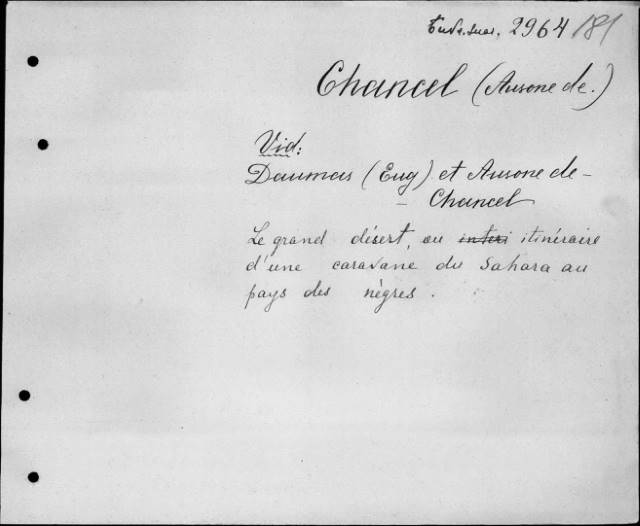 2964 181
Chancel (Ausone de.)
Vid:
Daumas (Eug) et Ausone de-
- Chancel
Le grand désert, ou interi itinéraire
d'une caravane du Sahara au
pays des nègres.